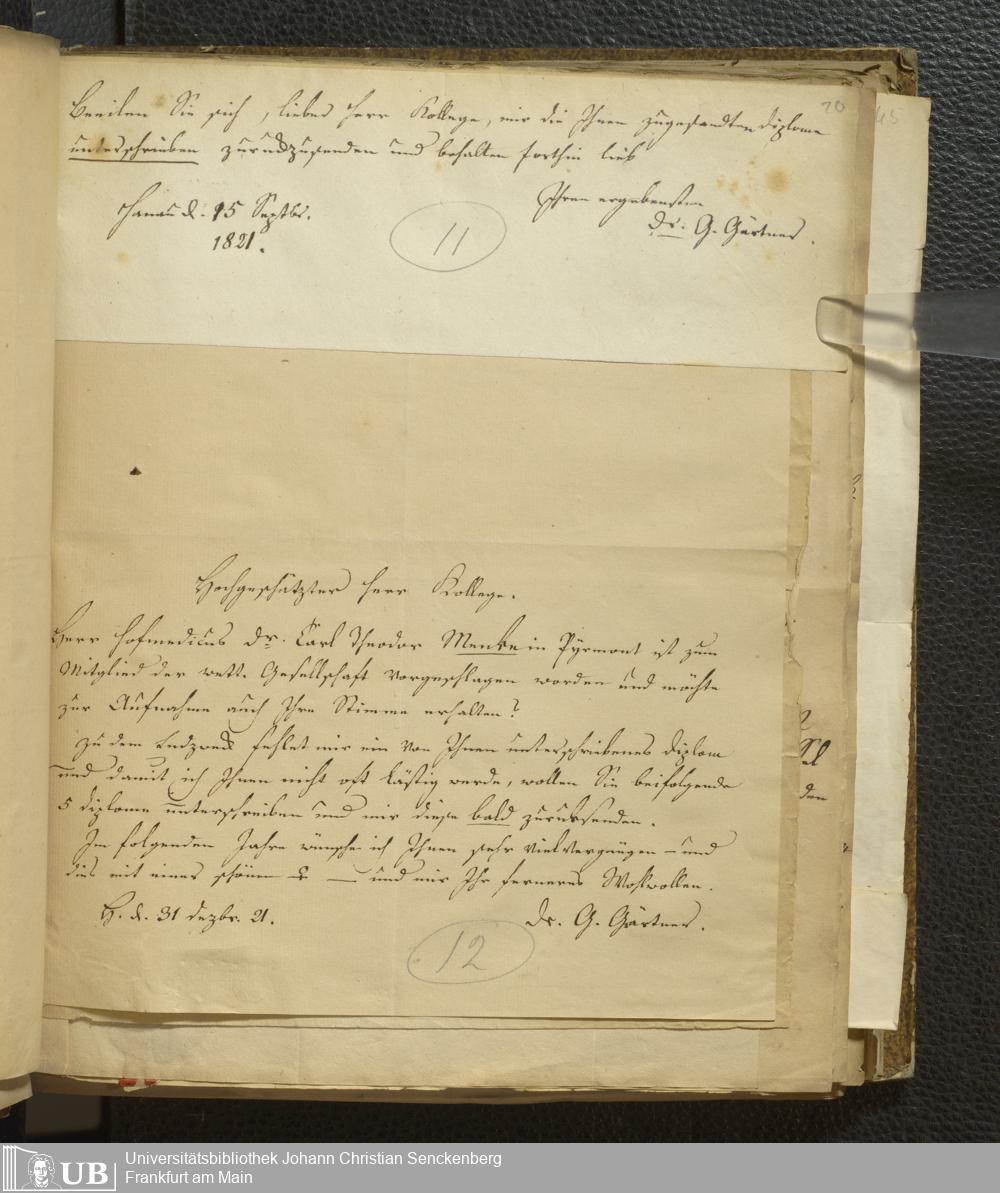 20
45
Beeilen Sie sich, lieber Herr Kollege, mir die Ihnen zugesandten Diplome
unterschrieben zurückzusenden und behalten forthin lieb
Ihren ergebensten
Hanau d. 15 Septbr.
Dr. G. Gärtner.
1821.
11
Hochgeschätzter Herr Kollege.
Herr Hofmedicus Dr. Carl Theodor Menke in Pyrmont ist zum
Mitglied der wett. Gesellschaft vorgeschlagen worden und möchte
zur Aufnahme auch Ihre Stimme erhalten?
Zu dem Endzweck fehlet mir ein von Ihnen unterschriebenes Diplom
und damit ich Ihnen nicht oft lästig werde, wollen Sie beifolgende
5 Diplome unterschreiben und mir diese bald zurücksenden.
Im folgenden Jahre wünsche ich Ihnen sehr viel Vergnügen – und
dies mit einer schönen — und mir Ihr ferneres Wohlwollen.
H. d. 31 Dezbr. 21.
Dr. G. Gärtner.
12
den
UB
Universitätsbibliothek Johann Christian Senckenberg
Frankfurt am Main